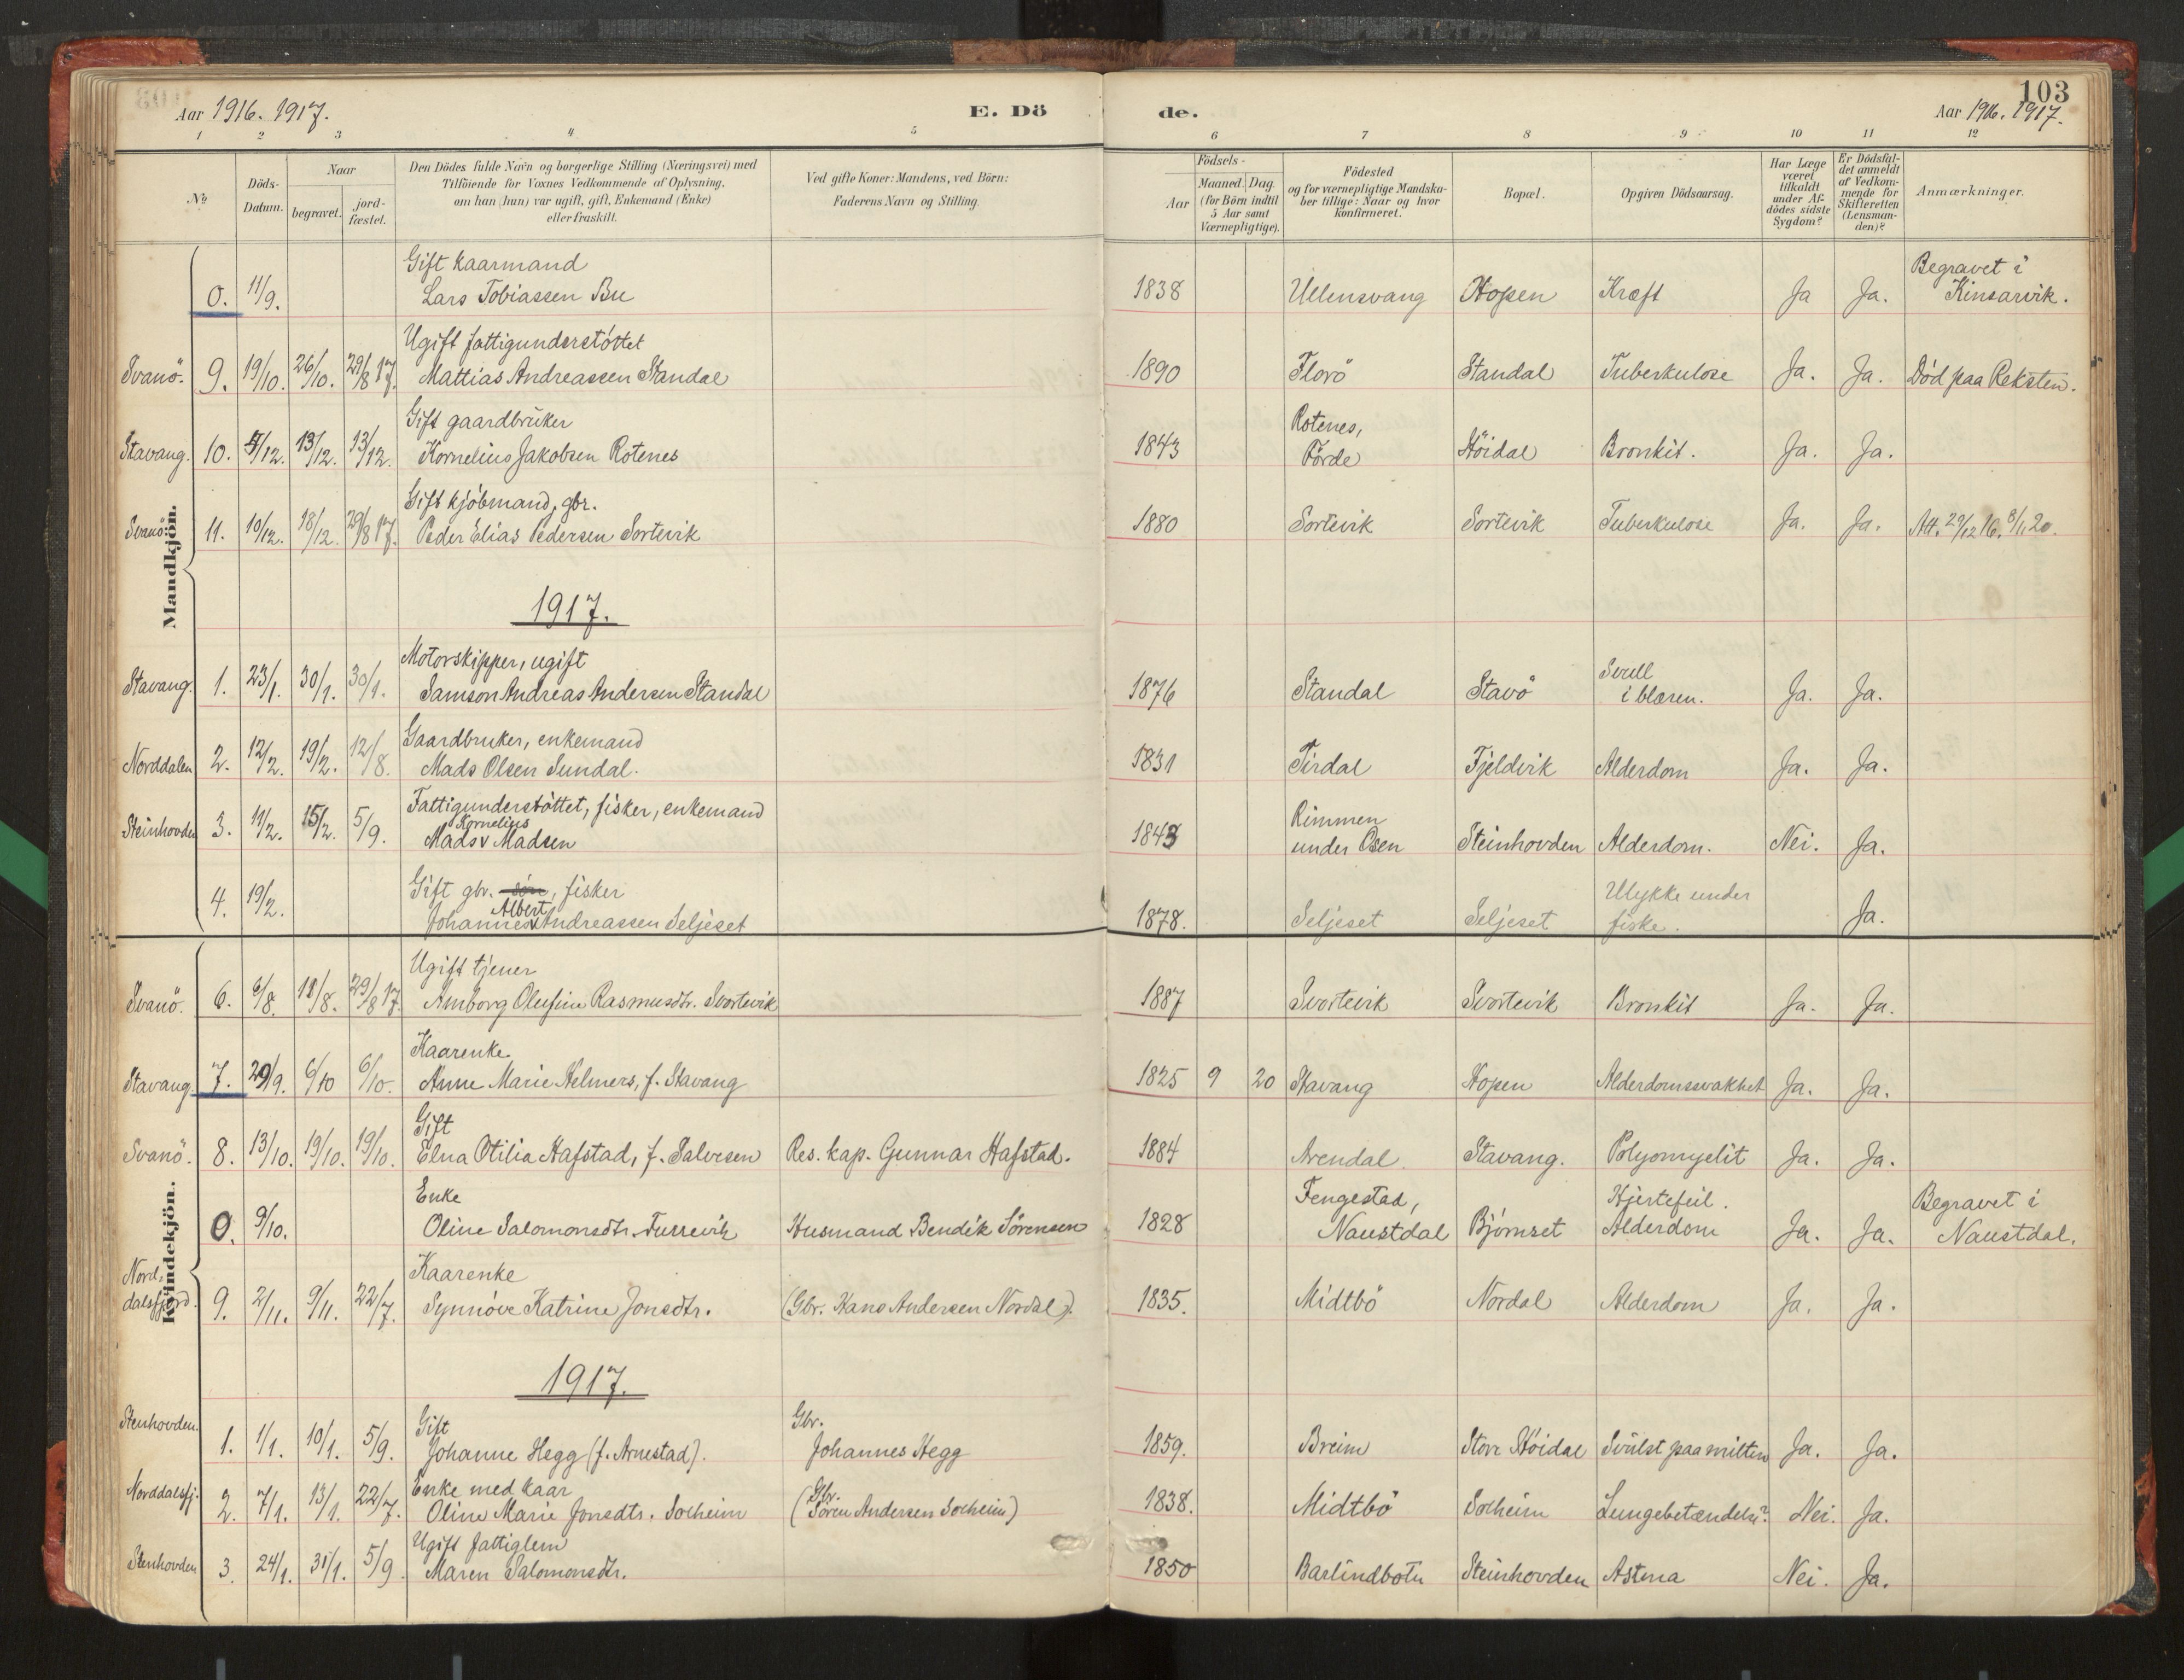 103
Aar 1916. 1917. E. Dö de. Aar 1916. 1917.
1 2 3 4 5 6 7 8 9 10 11 12
No. Döds-Datum. Naar begravet. jordfæstet. Den Dödes fulde Navn og borgerlige Stilling (Næringsvei) med Tilföiende for Voxnes Vedkommende af Oplysning, om han (hun) var ugift, gift, Enkemand (Enke) eller fraskilt. Ved gifte Koner: Mandens, ved Börn: Faderens Navn og Stilling. Födsels- Aar Maaned. Dag. (for Börn indtil 5 Aar samt Værnepligtige). Födested og for værnepligtige Mandskaber tillige: Naar og hvor konfirmeret. Bopæl. Opgiven Dödsaarsag. Har Læge været tilkaldt under Afdödes sidste Sygdom? Er Dödsfaldet anmeldt af Vedkommende for Skifteretten (Lensmanden)? Anmærkninger.
Mandkjön.
Gift kaarmand Begravet i
0. 11/9. Lars Tobiassen Bu 1838 Ullensvang Hopen Kræft Ja Ja. Kinsarvik.
Ugift fattigunderstöttet
Svanö. 9. 19/10. 26/10. 29/8 17. Mattias Andreassen Standal 1890 Florö Standal Tuberkulose Ja. Ja. Död paa Reksten.
Gift gaardbruker Rotenes,
Stavang. 10. 5/12. 13/12. 13/12. Kornelius Jakobsen Rotenes 1843 Förde Höidal Bronkit. Ja. Ja.
Gift kjöbmand, gbr.
Svanö. 11. 10/12. 18/12. 29/8 17. Peder Elias Pedersen Sortevik 1880 Sortevik Sortevik Tuberkulose Ja. Ja. Att. 29/12 16. 8/1 20.
1917.
Motorskipper, ugift Svull
Stavang. 1. 23/1. 30/1. 30/1. Samson Andreas Andersen Standal 1876 Standal Stavö i blæren. Ja. Ja.
Gaardbruker, enkemand
Norddalen 2. 12/2. 19/2. 12/8. Mads Olsen Sundal. 1831 Tirdal Fjeldvik Alderdom Ja. Ja.
Fattigunderstöttet, fisker, enkemand Rimmen
Kornelius
Steinhovden 3. 11/2. 15/2. 5/9. Mads Madsen 1843 under Osen Steinhovden Alderdom. Nei. Ja.
Gift gbr. sön, fisker Ulykke under
Albert
4. 19/2. Johannes Andreassen Seljeset 1878. Seljeset Seljeset fiske. Ja.
Kvindekjön.
Ugift tjener
Svanö. 6. 6/8. 18/8. 29/8 17. Amborg Olufine Rasmusdtr. Svortevik 1887 Svortevik Svortevik Bronkit Ja. Ja.
Kaarenke
Stavang. 7. 29/9. 6/10 6/10. Anne Marie Helmers, f. Stavang 1825 9 20 Stavang Hopen Alderdomssvakhet Ja. Ja.
Gift
Svanö. 8. 13/10. 19/10. 19/10. Elna Otilia Hafstad, f. Salvesen Res. kap. Gunnar Hafstad. 1884 Arendal. Stavang. Polyomyelit Ja. Ja.
Enke Fengestad, Hjertefeil. Begravet i
0. 9/10. Oline Salomonsdtr. Furrevik Husmand Bendik Sörensen 1828 Naustdal Björnset Alderdom Ja. Ja. Naustdal.
Kaarenke
Nord-
dalsfjord. 9. 2/11. 9/11. 22/7. Synnöve Katrine Jonsdtr. (Gbr. Hans Andersen Nordal). 1835. Midtbö Nordal Alderdom Ja. Ja.
1917.
Gift Gbr.
Stenhovden. 1. 1/1. 10/1. 5/9. Johanne Hegg (f. Arnestad). Johannes Hegg 1859. Breim Store Höidal Svulst paa milten Ja. Ja.
Enke med kaar Gbr.
Norddalsfj. 2. 7/1. 13/1. 22/7. Oline Marie Jonsdtr. Solheim (Sören Andersen Solheim) 1838. Midtbö Solheim Lungebetændelse? Nei. Ja.
Ugift fattiglem
Stenhovden 3. 24/1. 31/1. 5/9. Maren Salomonsdtr. 1850 Barlindbotn Steinhovden Astma Nei. Ja.